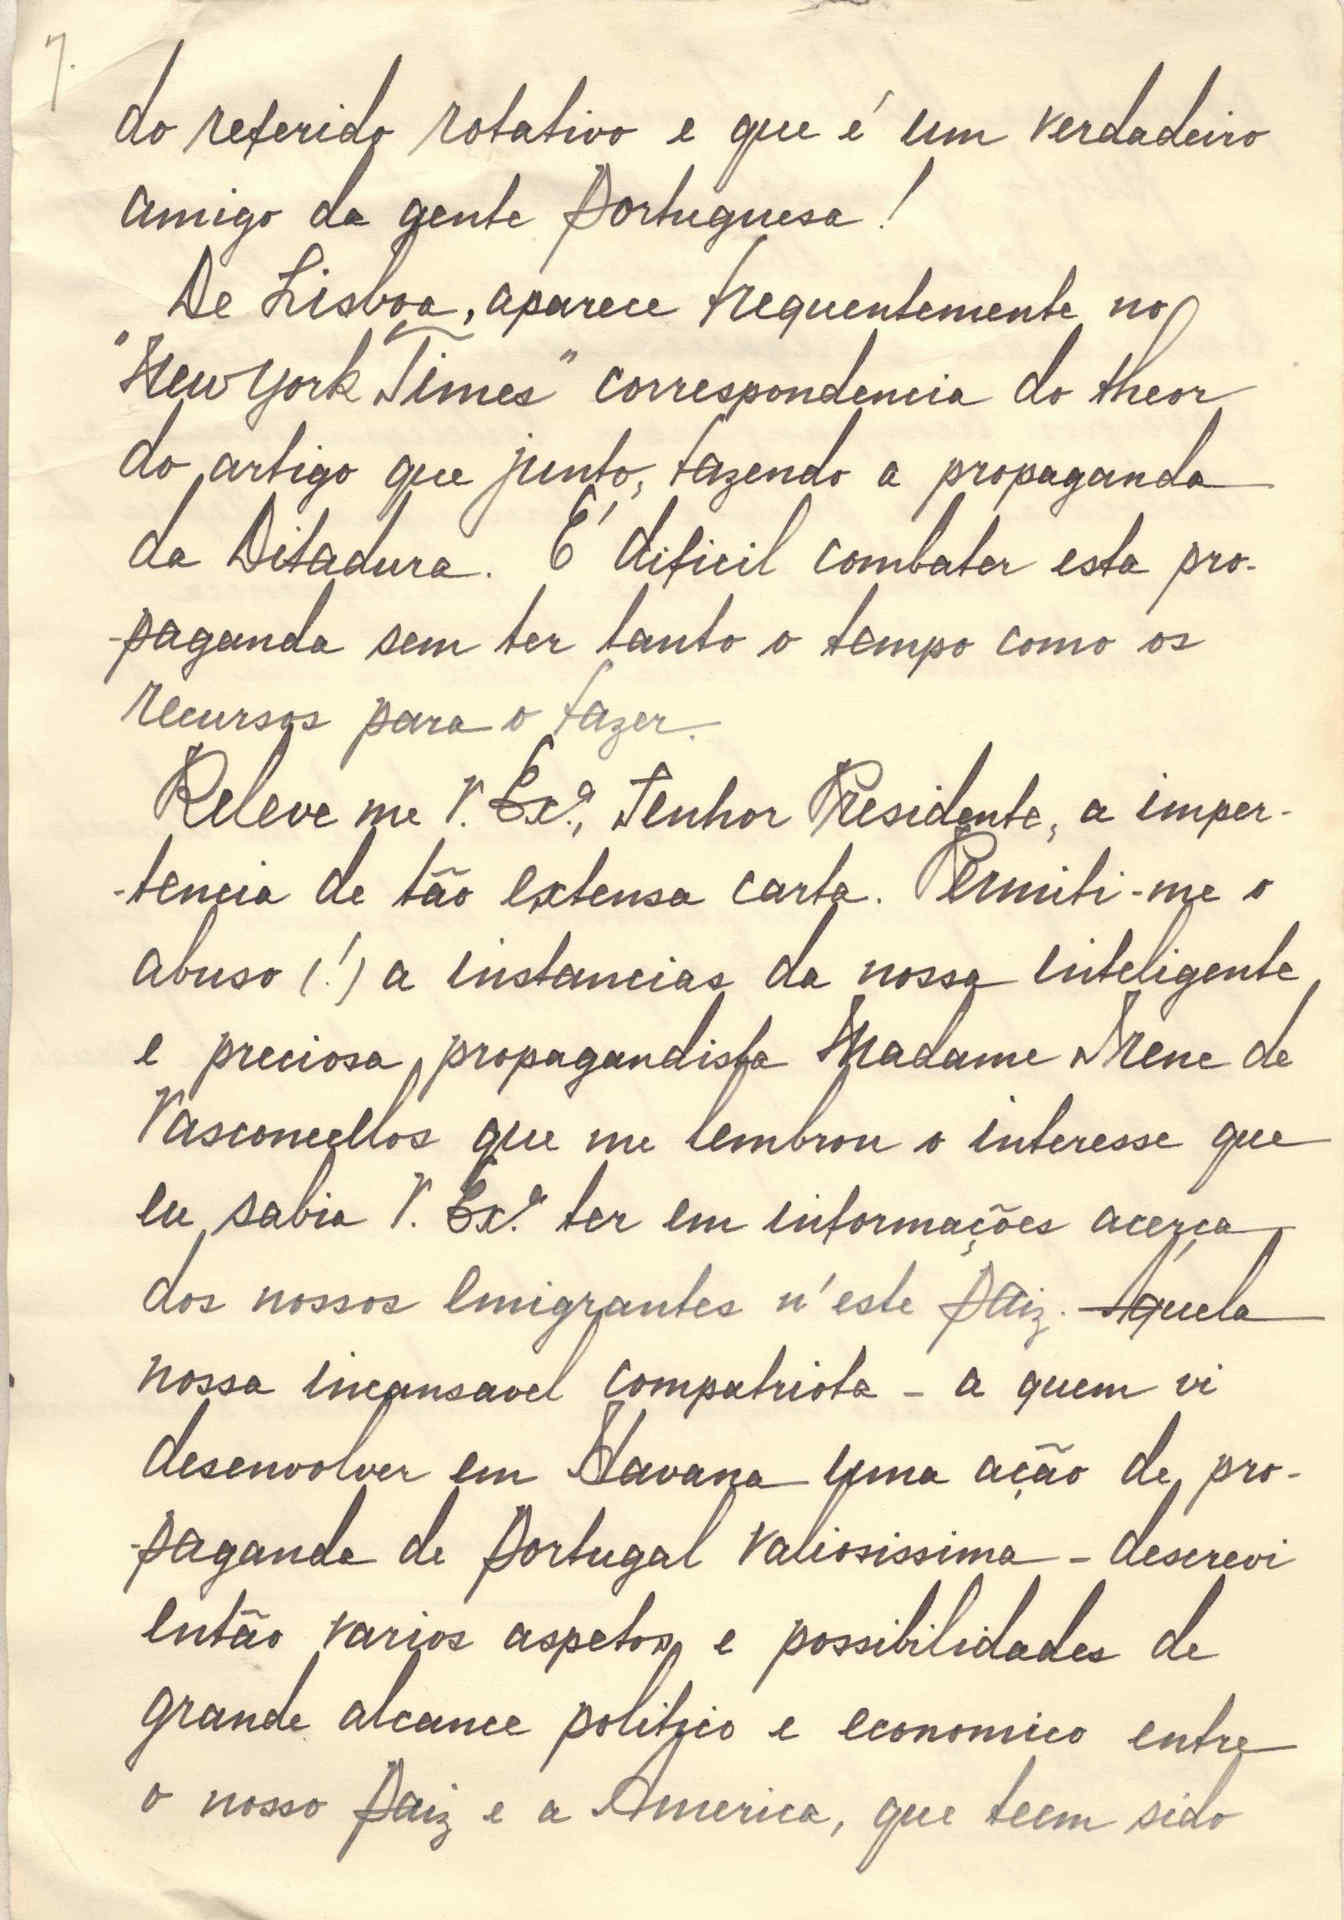 7.
do referido rotativo e que é um verdadeiro
amigo da gente Portuguesa!
De Lisboa, aparece frequentemente no
"New York Times" correspondencia do theor
do artigo que junto, fazendo a propaganda
da Ditadura. É dificil combater esta pro-
-paganda sem ter tanto o tempo como os
recursos para o fazer.
Releve me V. Exª, Senhor Presidente, a imper-
-tencia de tão extensa carta. Permiti-me o
abuso (!) a instancias da nossa inteligente
e preciosa propagandista Madame Irene de
Vasconcellos que me lembrou o interesse que
eu sabia V. Exª ter em informações acerca
dos nossos Emigrantes n'este Paiz. Aquela
nossa incansavel compatriota - a quem vi
desenvolver em Havana uma ação de pro-
-paganda de Portugal valiosissima - descrevi
então varios aspetos e possibilidades de
grande alcance politico e economico entre
o nosso Paiz e a America, que teem sido